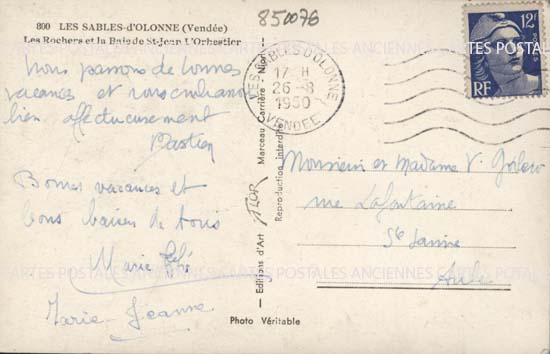 850076
800 LES SABLES-d'OLONNE (Vendée)
Les Rochers et la Baie de St-Jean L'Orbestier
Nous passons de bonnes
vacances et vous embrassons
bien affectueusement
Bastien
Bonnes vacances et
bons baisers de tous
Marie
Marie-Jeanne
Editions d'Art JTOR Marceau Carrière - Niort
Reproduction interdite
Photo Véritable
LES SABLES D'OLONNE
17 H
26-8
1950
VENDEE
12F
RF
Monsieur et Madame V.
rue Lafontaine
Ste Savine
Aube
CARTES POSTALES ANCIENNES CARTES POSTALES ANCIENNES CARTES POSTALES
CARTES POSTALES ANCIENNES CARTES POSTALES ANCIENNES CARTES POSTAL